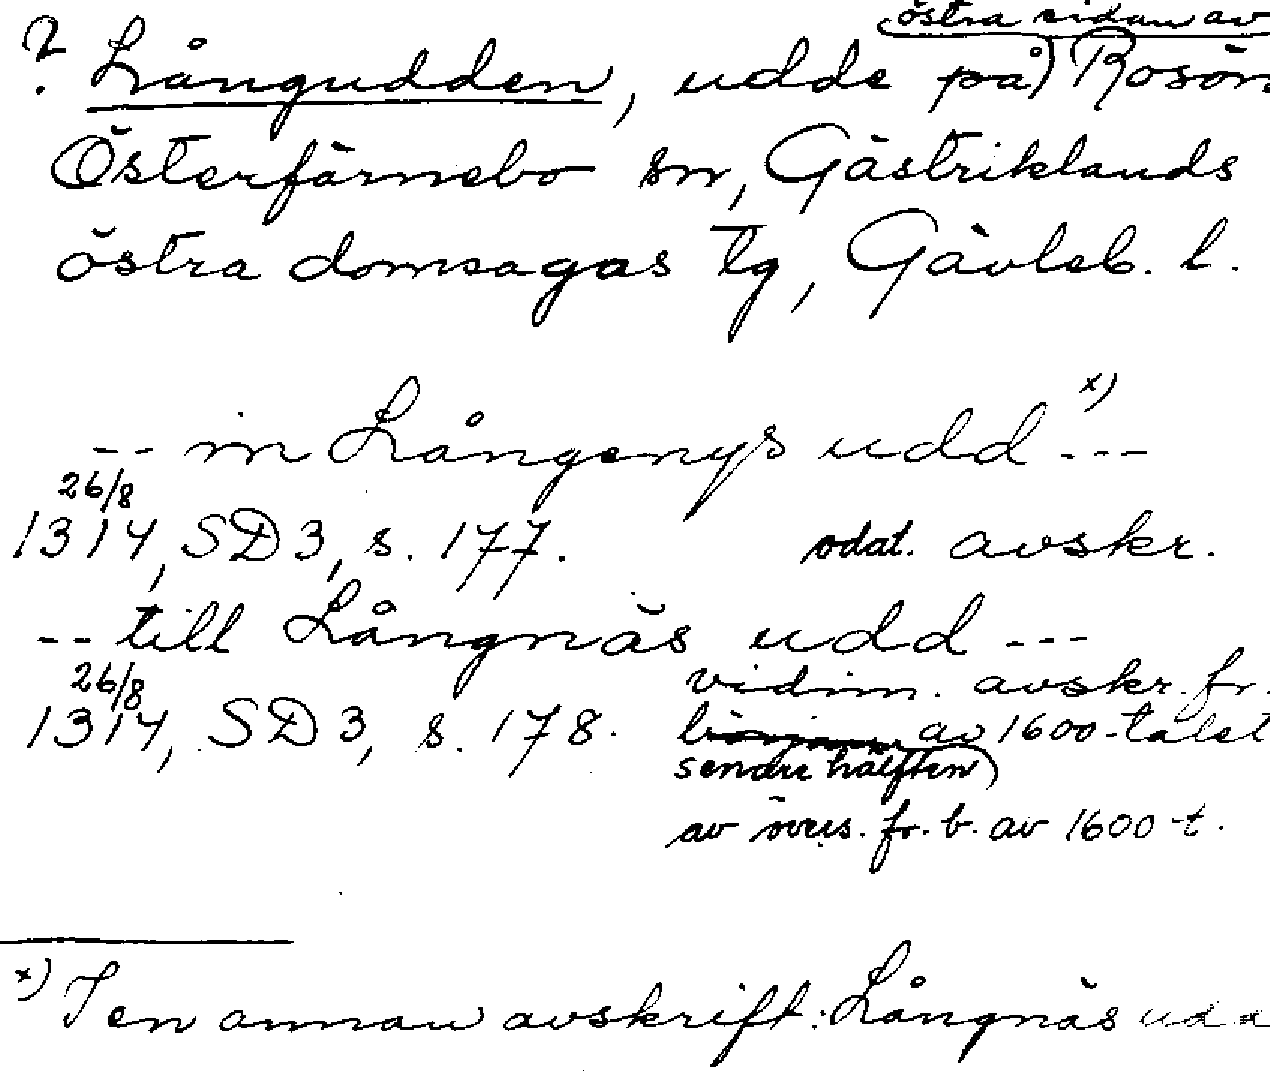 östra sidan av
? Långudden, udde på) Rosön
Österfärnebo sn, Gästriklands
östra domsagas tg, Gävleb. l.
-- in Långenys udd x) ---
26/8
1314, SD 3, s. 177. odat. avskr.
-- till Långnäs udd ---
26/8 vidim. avskr. fr.
1314, SD 3, s. 178. av 1600-talet
senare hälften)
av övers. fr. b. av 1600-t.
x) I en annan avskrift: Långnäs udd